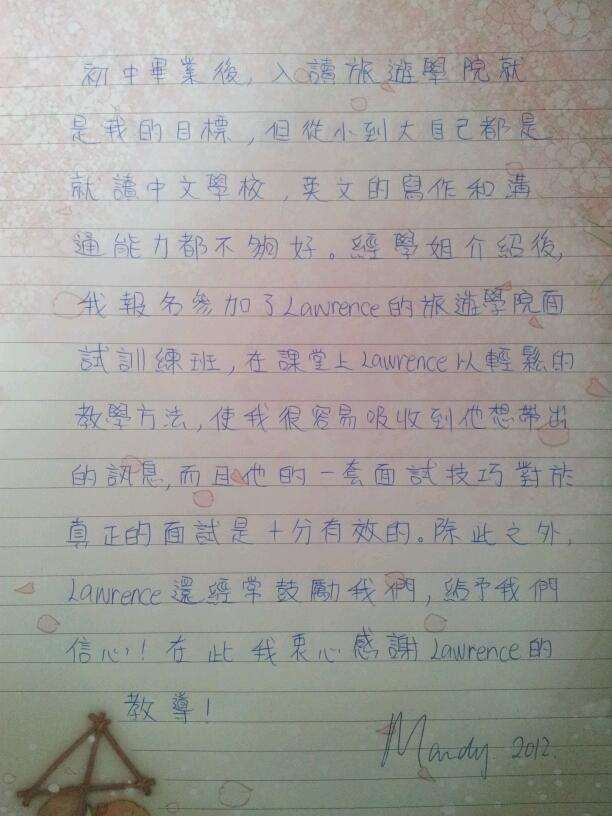 初中畢業後，入讀旅遊學院就
是我的目標，但從小到大自己都是
就讀中文學校，英文的寫作和溝
通能力都不夠好。經學姐介紹後，
我報名參加了Lawrence的旅遊學院面
試訓練班，在課堂上Lawrence以輕鬆的
教學方法，使我很容易吸收到他想帶出
的訊息，而且他的一套面試技巧對於
真正的面試是十分有效的。除此之外，
Lawrence還經常鼓勵我們，給予我們
信心！在此我衷心感謝Lawrence的
教導！
Mandy 2012.